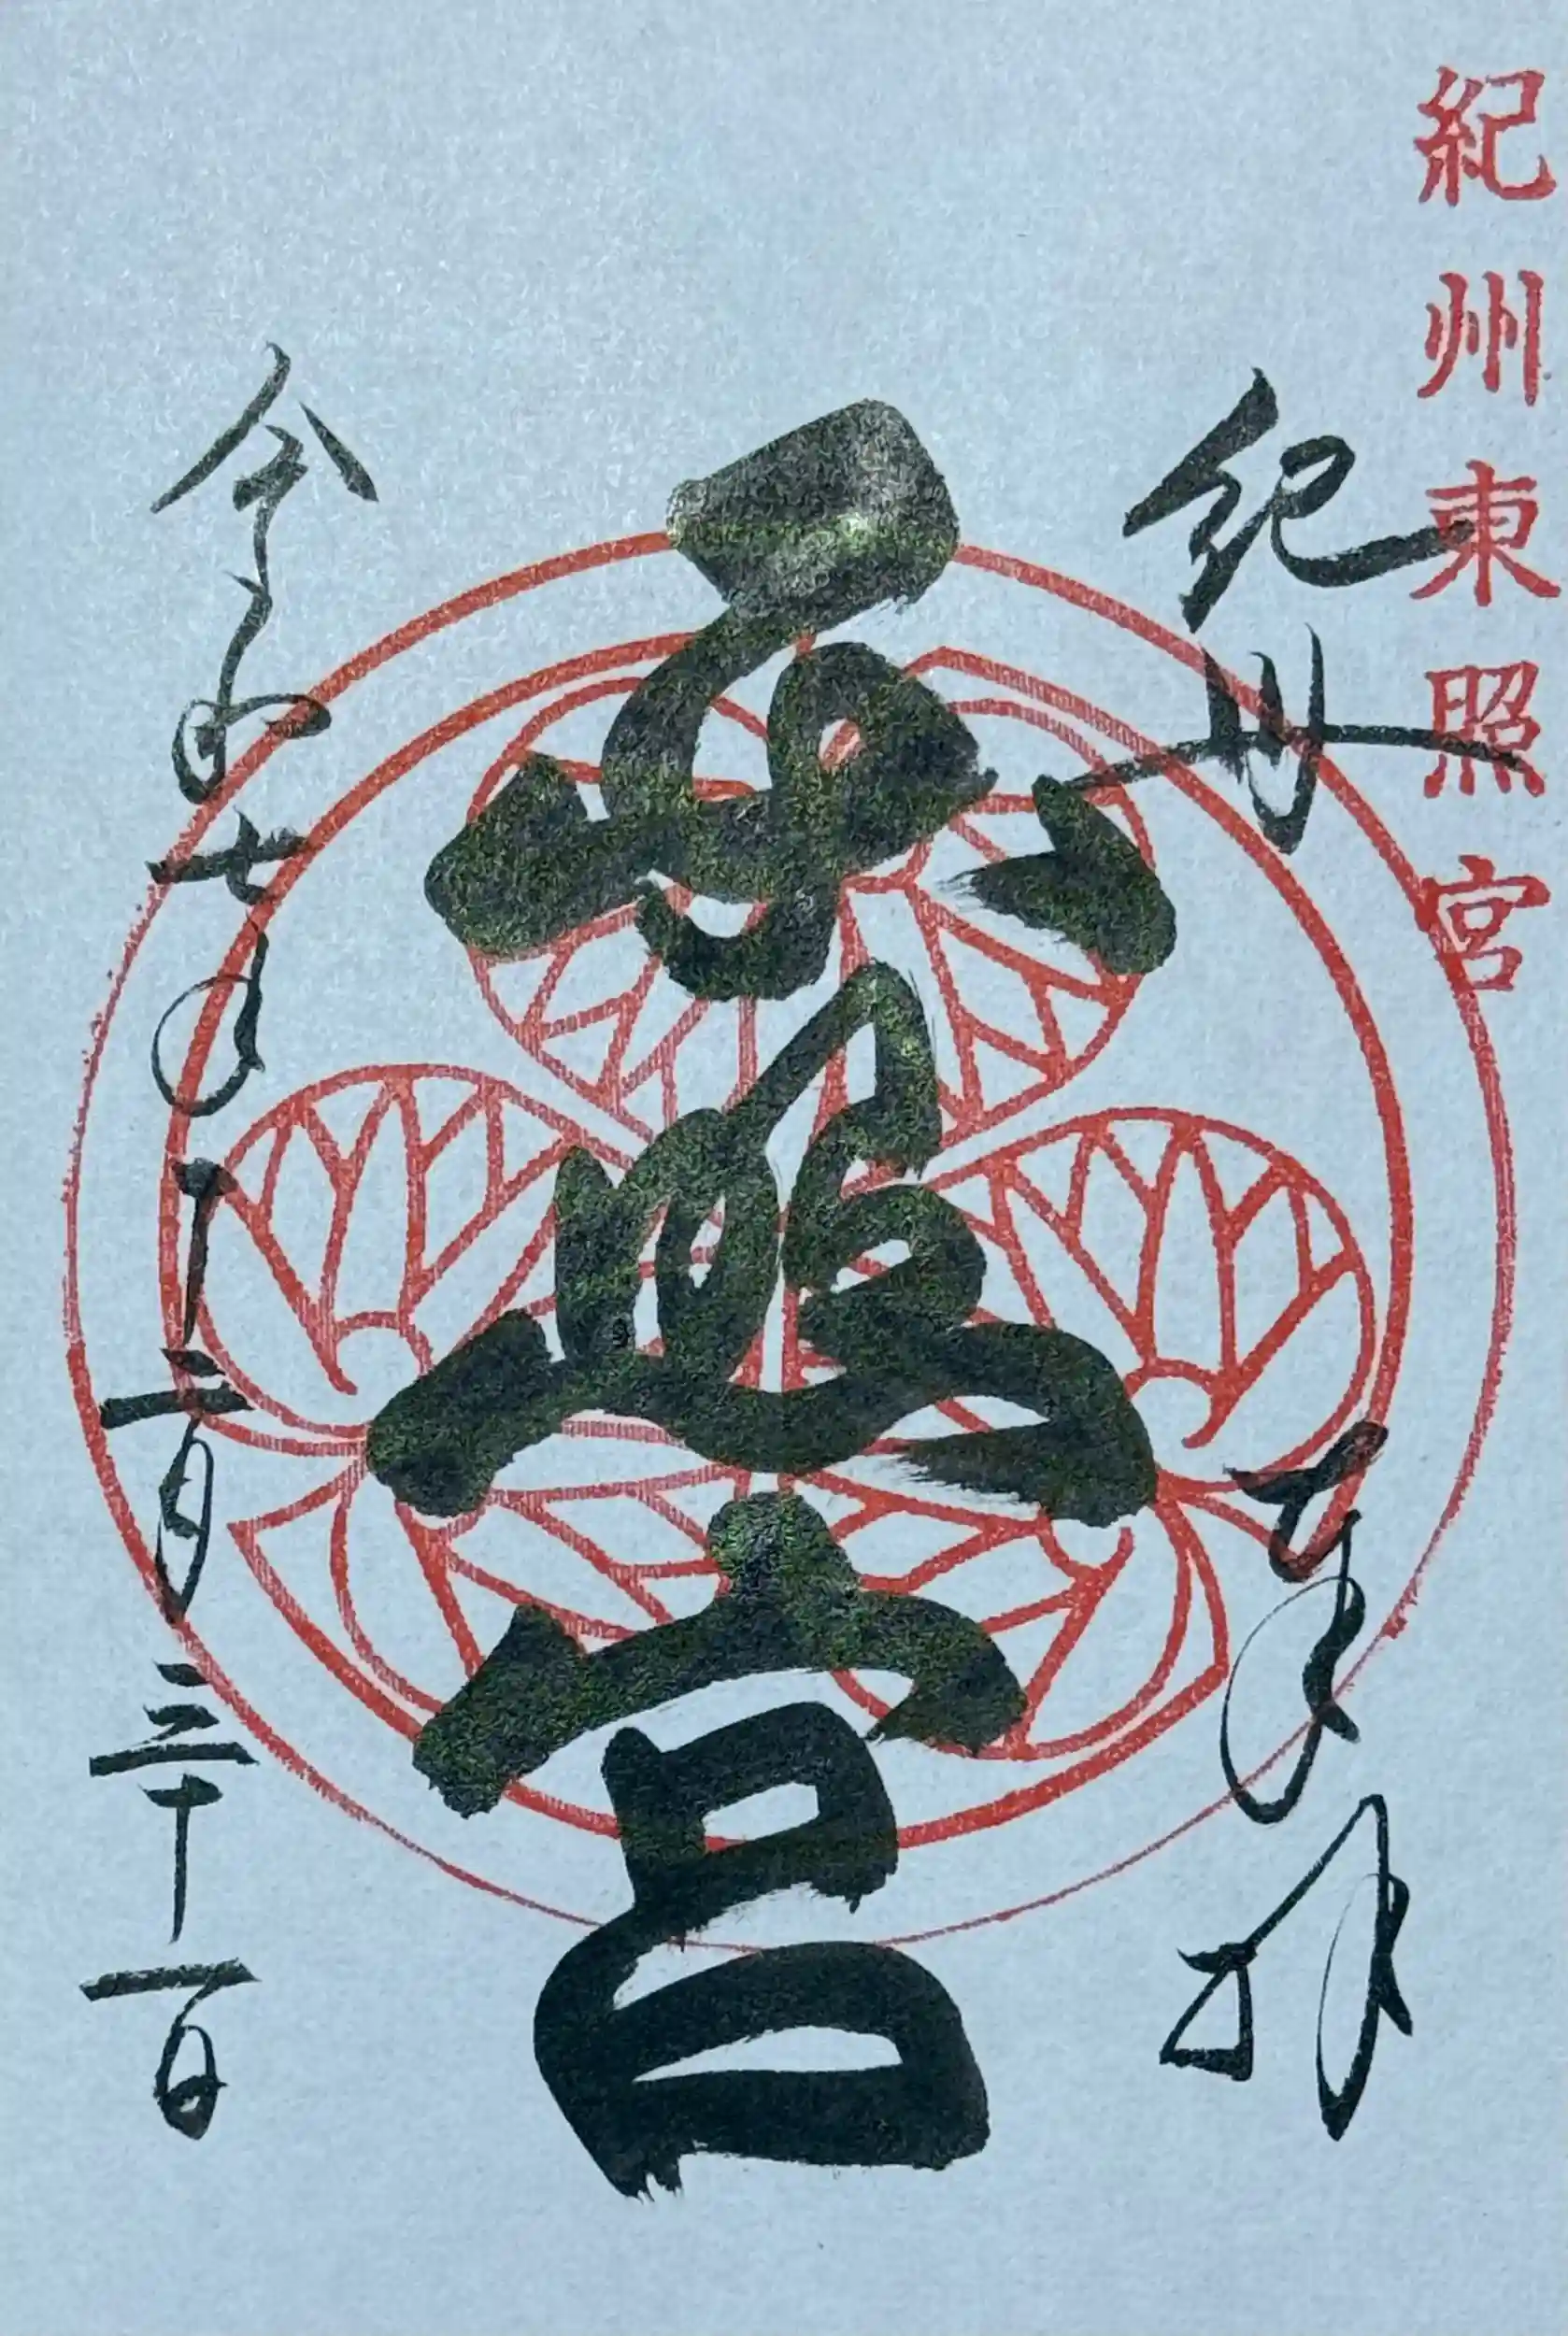 紀州東照宮
紀州 奉拝
東照宮
令和七年十二月三十一日